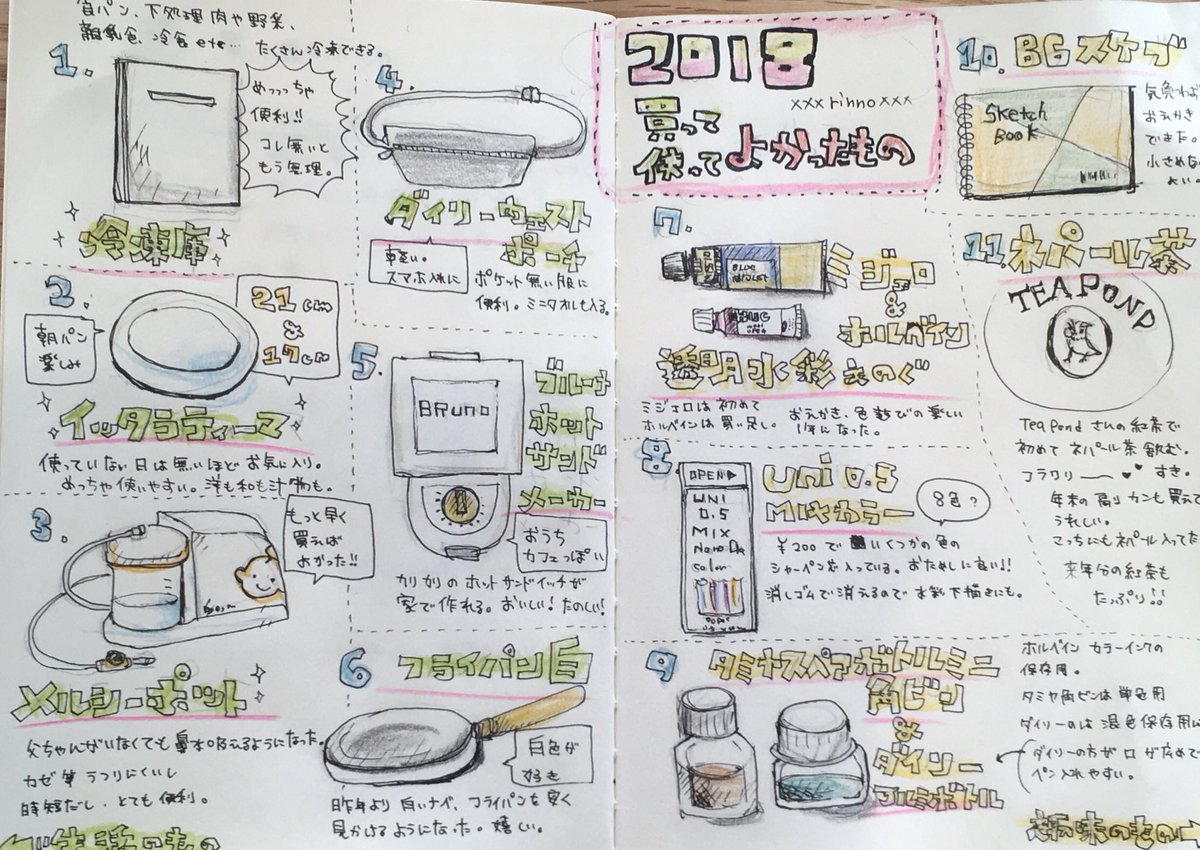 食パン、下処理肉や野菜、
離乳食、冷食etc…
たくさん冷凍できる。
1.
めっっっちゃ
便利!!
コレ無いと
もう無理。
冷凍庫
2.
朝パン
楽しみ
21cm
&
17cm
イッタラティーマ
使っていない日は無いほどお気に入り。
めっちゃ使いやすい。洋も和も汁物も。
3.
もっと早く
買えば
よかった!!
メルシーポット
父ちゃんがいなくても鼻水吸えるようになった。
カゼ等うつりにくいし
時短だし、とても便利。
4.
ダイリーウェスト
ポーチ
軽い。
スマホ入れに
ポケット無い服に
便利。ミニタオルも入る。
5.
BRUNO
ブルーナ
ホット
サンド
メーカー
おうち
カフェっぽい
カリカリのホットサンドイッチが
家で作れる。おいしい!たのしい!
6
フライパン白
白色が
好き
昨年より白いナベ、フライパンを安く
見かけるようになった。嬉しい。
2018
xxx rinno xxx
買って
使って よかったもの
7.
ミジェロ
&
ホルベイン
透明水彩えのぐ
ミジェロは初めて
ホルベインは買い足し。
おえかき、色遊びの楽しい
1年になった。
8
OPEN▶
UNI
0.5
MIX
Nano Dia
color
uni 0.5
MIXカラー
8色?
¥200でいくつかの色の
シャーペン芯入っている。おためしに良い!!
消しゴムで消えるので水彩下描きにも。
9
タミヤスペアボトルミニ
角ビン
&
ダイソー
マルミボトル
ホルベイン カラーインクの
保存用。
タミヤ角ビンは単色用
ダイソーのは混色保存用に
ダイソーの方が口が広めで
ペン入れやすい。
10.
BGスケブ
Sketch
Book
気負わず
おえかき
できた。
小さめな
よい。
11.
ネパール茶
TEA POND
Tea pondさんの紅茶で
初めてネパール茶飲む。
フラワリー すき。
年末の福りカンも買えて
うれしい。
こっちにもネパール入ってた
来年分の紅茶も
たっぷり!!